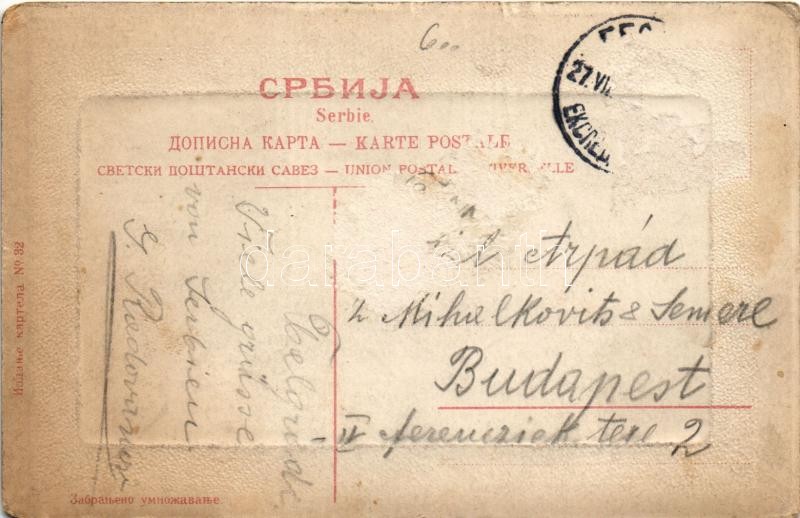 6
СРБИЈА
Serbie.
ДОПИСНА КАРТА — KARTE POSTALE
СВЕТСКИ ПОШТАНСКИ САВЕЗ — UNION POSTAL
27.VII
Belgrade
Viele grüsse
von Serbien
G. Radovanov
Árpád
Mihalkovits & Semere
Budapest
IV ferencziek tere 2
Издање картела № 32
Забрањено умножавање.
darabanth.com